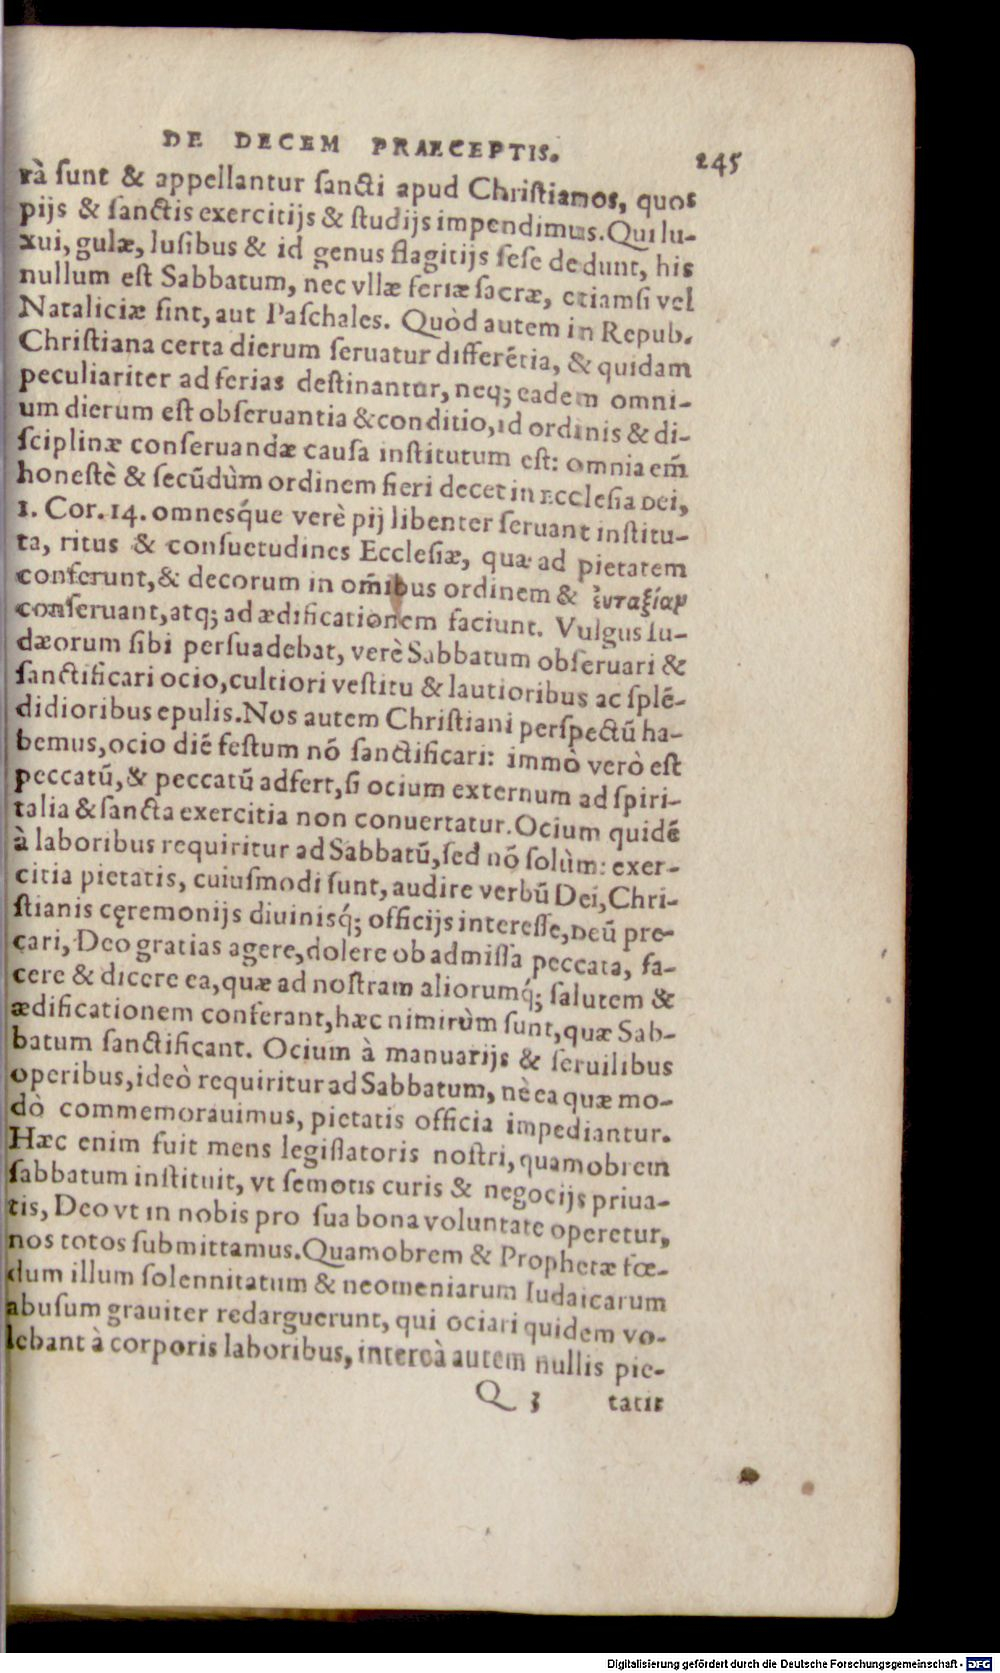 DE DECEM PRAECEPTIS. 245
rà ſunt & appellantur ſancti apud Chriſtianos, quos
pijs & ſanctis exercitijs & ſtudijs impendimus. Qui lu-
xui, gulæ, luſibus & id genus flagitijs ſeſe dedunt, his
nullum eſt Sabbatum, nec vllæ feriæ ſacræ, etiamſi vel
Nataliciæ ſint, aut Paſchales. Quòd autem in Repub.
Chriſtiana certa dierum ſeruatur differẽtia, & quidam
peculiariter ad ferias deſtinantur, neq; eadem omni-
um dierum eſt obſeruantia & conditio, id ordinis & di-
ſciplinæ conſeruandæ cauſa inſtitutum eſt: omnia em̃
honeſtè & ſecũdùm ordinem fieri decet in Eccleſia Dei,
1. Cor. 14. omnesq́ue verè pij libenter ſeruant inſtitu-
ta, ritus & conſuetudines Eccleſiæ, quæ ad pietatem
conferunt, & decorum in om̃ibus ordinem & ἐυταξίαν
conſeruant, atq; ad ædificationem faciunt. Vulgus Iu-
dæorum ſibi perſuadebat, verè Sabbatum obſeruari &
ſanctificari ocio, cultiori veſtitu & lautioribus ac ſplẽ-
didioribus epulis. Nos autem Chriſtiani perſpectũ ha-
bemus, ocio diẽ feſtum nõ ſanctificari: immò verò eſt
peccatũ, & peccatũ adfert, ſi ocium externum ad ſpiri-
talia & ſancta exercitia non conuertatur. Ocium quidẽ
à laboribus requiritur ad Sabbatũ, ſed nõ ſolùm: exer-
citia pietatis, cuiuſmodi ſunt, audire verbũ Dei, Chri-
ſtianis cęremonijs diuinisq́; officijs intereſſe, Deũ pre-
cari, Deo gratias agere, dolere ob admiſſa peccata, fa-
cere & dicere ea, quæ ad noſtram aliorumq́; ſalutem &
ædificationem conferant, hæc nimirùm ſunt, quæ Sab-
batum ſanctificant. Ocium à manuarijs & ſeruilibus
operibus, ideò requiritur ad Sabbatum, nè ea quæ mo-
dò commemorauimus, pietatis officia impediantur.
Hæc enim fuit mens legiſlatoris noſtri, quamobrem
ſabbatum inſtituit, vt ſemotis curis & negocijs priua-
tis, Deo vt in nobis pro ſua bona voluntate operetur,
nos totos ſubmittamus. Quamobrem & Prophetæ fœ-
dum illum ſolennitatum & neomeniarum Iudaicarum
abuſum grauiter redarguerunt, qui ociari quidem vo-
lebant à corporis laboribus, intereà autem nullis pie-
Q 3 tatis
Digitalisierung gefördert durch die Deutsche Forschungsgemeinschaft - DFG